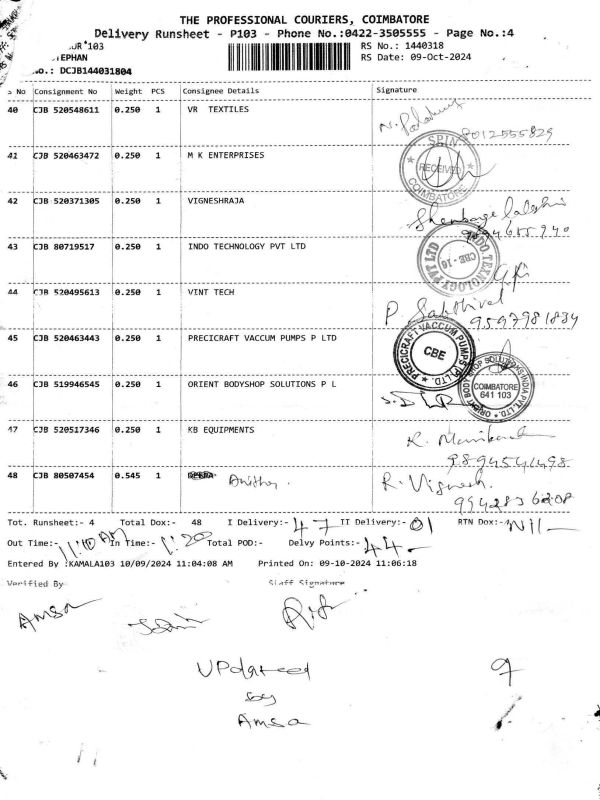 THE PROFESSIONAL COURIERS, COIMBATORE
Delivery Runsheet - P103 - Phone No.:0422-3505555 - Page No.:4
UR 103 RS No.: 1440318
TEPHAN RS Date: 09-Oct-2024
No.: DCJB144031804
S No Consignment No Weight PCS Consignee Details Signature
40 CJB 520548611 0.250 1 VR TEXTILES
8012555829
SPIN
RECEIVED
COIMBATORE
41 CJB 520463472 0.250 1 M K ENTERPRISES
42 CJB 520371305 0.250 1 VIGNESHRAJA
43 CJB 80719517 0.250 1 INDO TECHNOLOGY PVT LTD
CBE - 16
44 CJB 520495613 0.250 1 VINT TECH
P. Sakthivel
9597981834
45 CJB 520463443 0.250 1 PRECICRAFT VACCUM PUMPS P LTD
PRECICRAFT VACCUM PUMPS P. LTD.
CBE
46 CJB 519946545 0.250 1 ORIENT BODYSHOP SOLUTIONS P L
ORIENT BODY SHOP SOLUTIONS INDIA PVT. LTD.
COIMBATORE
641 103
47 CJB 520517346 0.250 1 KB EQUIPMENTS
9894541498
48 CJB 80507454 0.545 1
R. Vignesh
Tot. Runsheet:- 4 Total Dox:- 48 I Delivery:- 47 II Delivery:- 01 RTN Dox:- Nil
Out Time:- 11:10 AM In Time:- 1:20 Total POD:- Delvy Points:- 44
Entered By :KAMALA103 10/09/2024 11:04:08 AM Printed On: 09-10-2024 11:06:18
Verified By Staff Signature
Amsa
UPdateed
by
Amsa
9